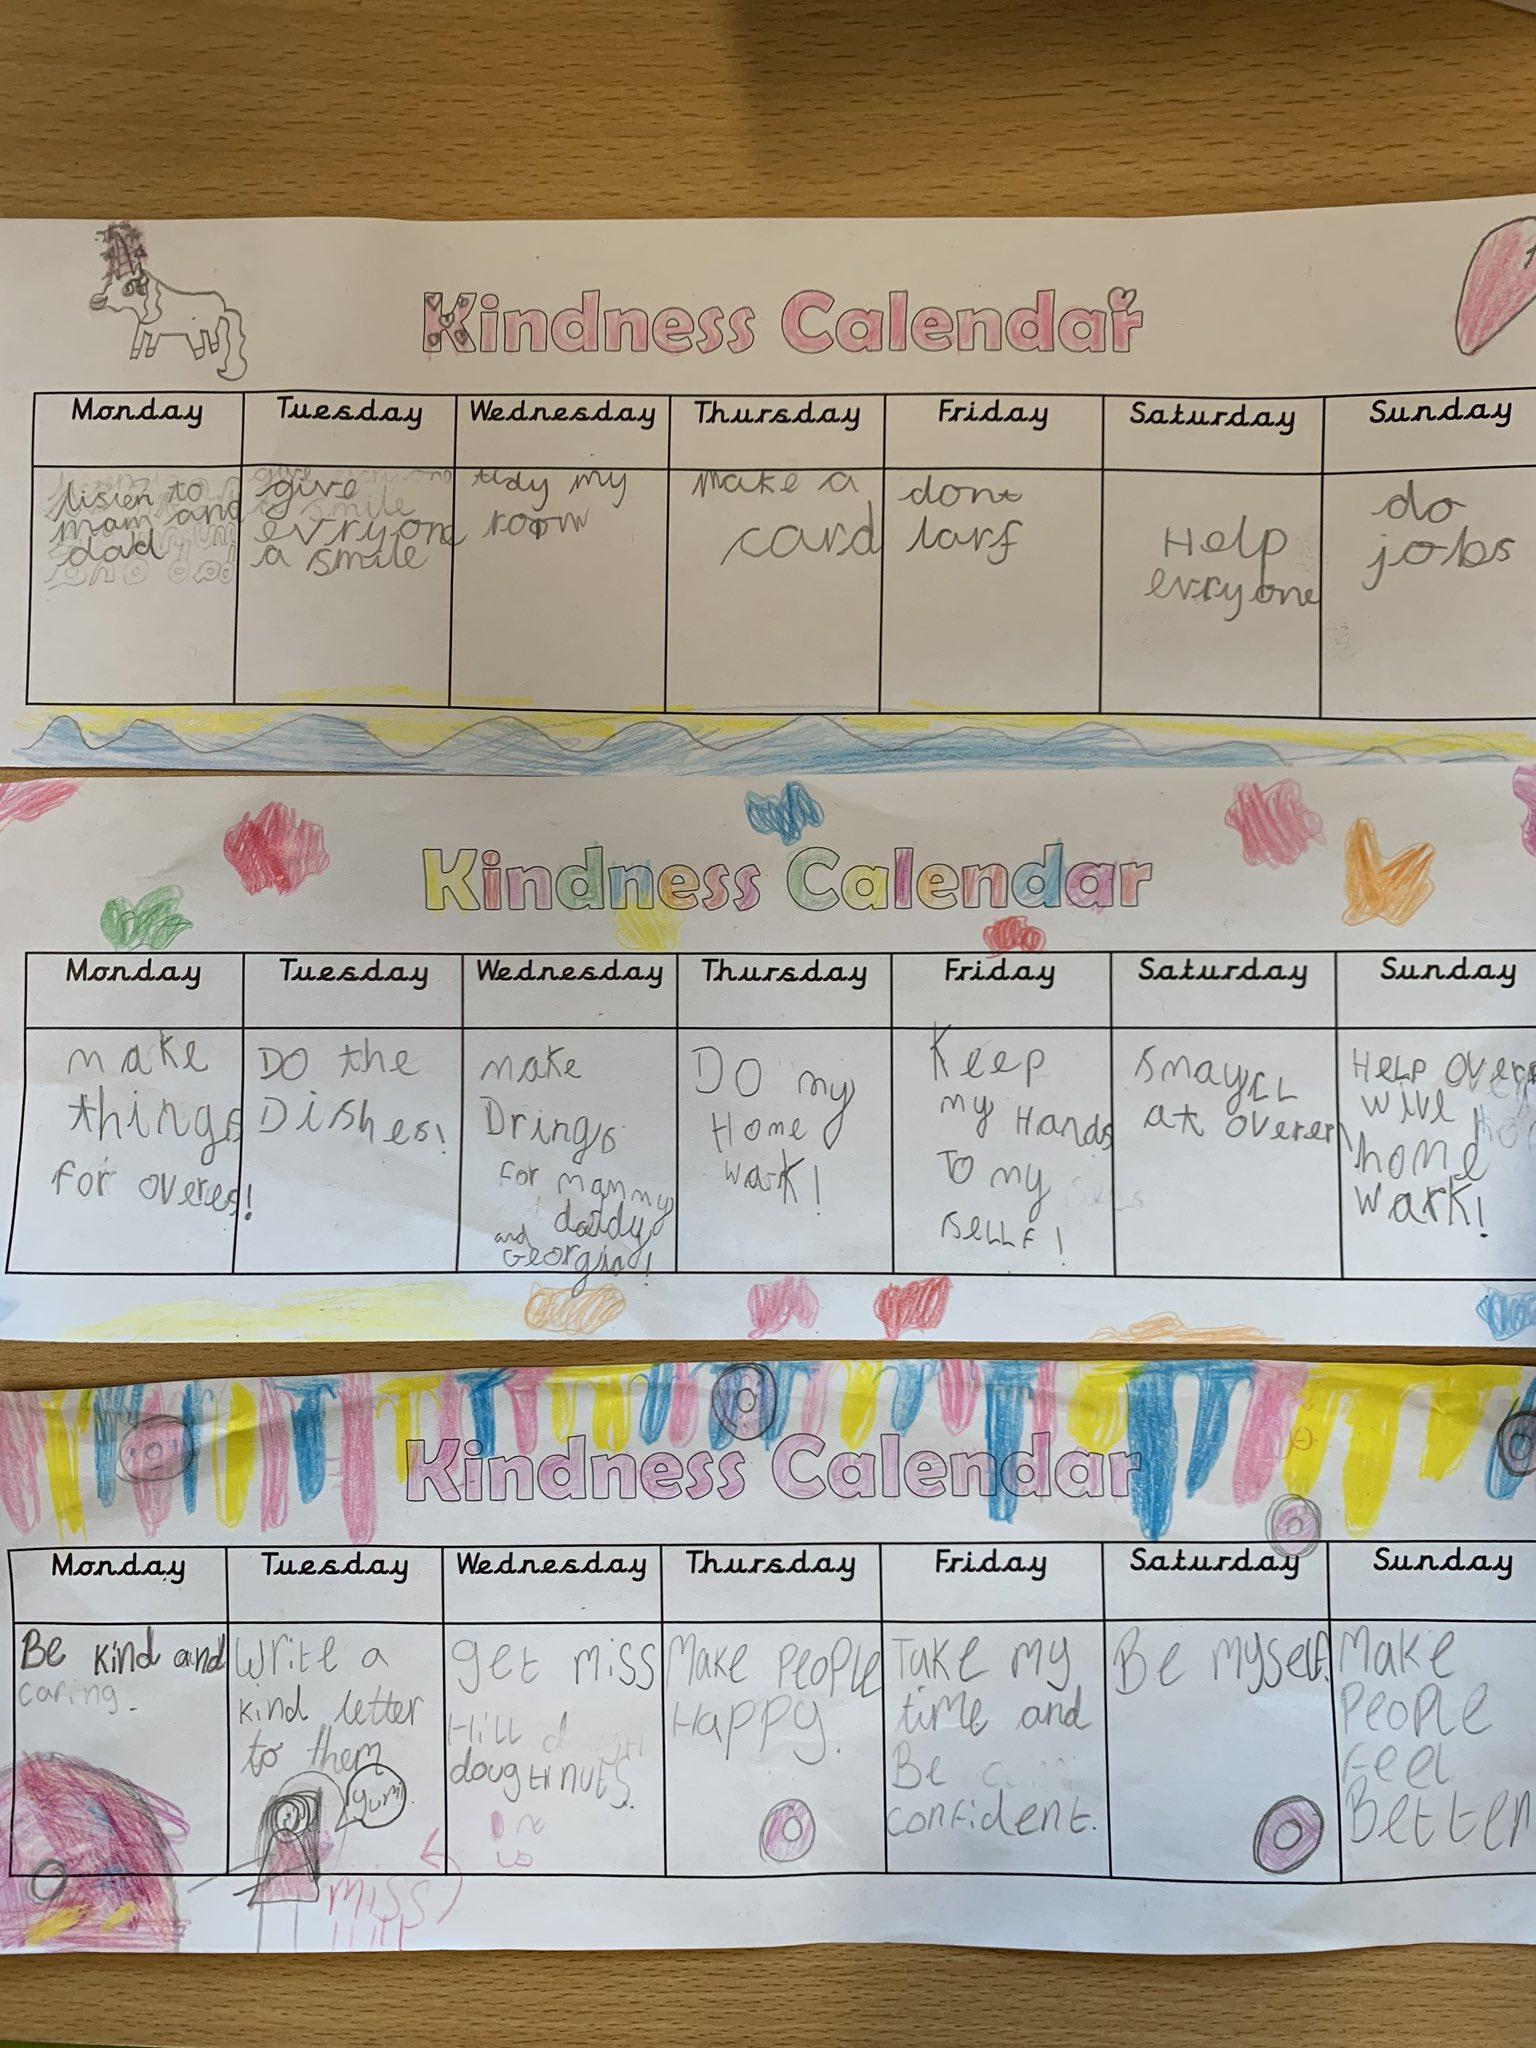 Kindness Calendar
Monday Tuesday Wednesday Thursday Friday Saturday Sunday
listen to
mam and
dad
give
evryone
a smile
tidy my
room
make a
card
dont
larf
Help
evryone
do
jobs
Kindness Calendar
Monday Tuesday Wednesday Thursday Friday Saturday Sunday
make
things
for overes!
DO the
Dishes!
make
Drings
for mammy
daddy
and
Georgia!
DO my
Home
wark!
Keep
my Hands
To my
sellf!
smayll
at overer
HeLP overs
wive
home
wark!
Kindness Calendar
Monday Tuesday Wednesday Thursday Friday Saturday Sunday
Be kind and
caring.
Write a
kind letter
to them
yum!
get miss
Hill
doughnuts.
Make People
Happy.
Take my
time and
Be
confident.
Be myself.
Make
People
Feel
Better
MISS
Hill